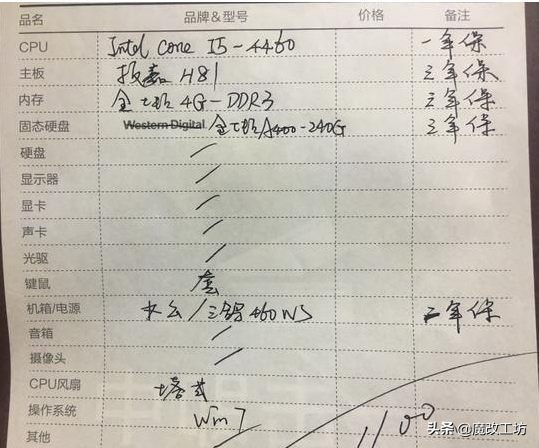 品名 品牌&型号 价格 备注
CPU Intel Core I5-4460 一年保
主板 H81 三年保
内存 金士顿 4G-DDR3 三年保
固态硬盘 Western Digital 金士顿A400-240G 三年保
硬盘 /
显示器 /
显卡 /
声卡 /
光驱 /
键鼠 套
机箱/电源 办公/ 460WS 二年保
音箱 /
摄像头 /
CPU风扇 塔式
操作系统 Win7
其他 1100
头条 @魔改工坊